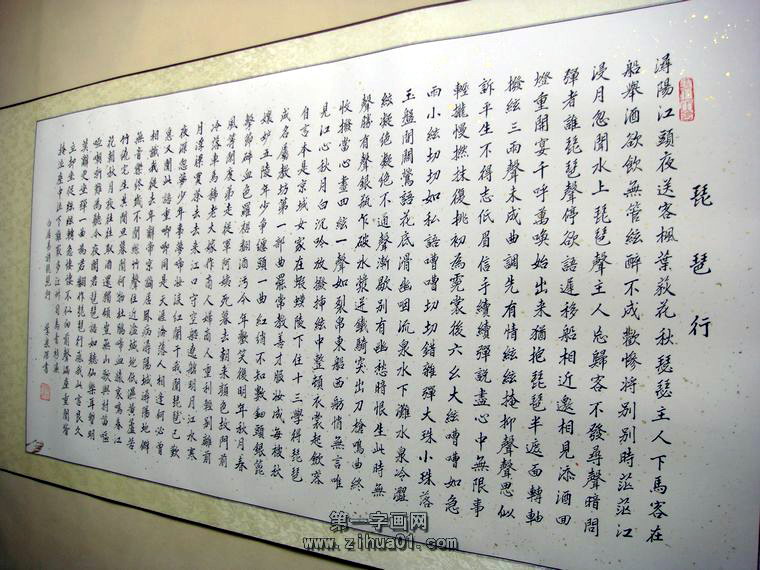 琵琶行
潯陽江頭夜送客楓葉荻花秋瑟瑟主人下馬客在
船舉酒欲飲無管絃醉不成歡慘將別別時茫茫江
浸月忽聞水上琵琶聲主人忘歸客不發尋聲暗問
彈者誰琵琶聲停欲語遲移船相近邀相見添酒回
燈重開宴千呼萬喚始出来猶抱琵琶半遮面轉軸
撥絃三兩聲未成曲調先有情絃絃掩抑聲聲思似
訴平生不得志低眉信手續續彈説盡心中無限事
輕攏慢撚抹復挑初為霓裳後六幺大絃嘈嘈如急
雨小絃切切如私語嘈嘈切切錯雜彈大珠小珠落
玉盤間關鶯語花底滑幽咽流泉水下灘水泉冷澀
絃凝絕凝絕不通聲漸歇別有幽愁暗恨生此時無
聲勝有聲銀瓶乍破水漿迸鐵騎突出刀槍鳴曲終
收撥當心畫四絃一聲如裂帛東船西舫悄無言唯
見江心秋月白沉吟放撥插絃中整頓衣裳起斂容
自言本是京城女家在蝦蟆陵下住十三學得琵琶
成名屬教坊第一部曲罷常教善才服妝成每被秋
孃妒五陵年少爭纏頭一曲紅綃不知數鈿頭銀篦
擊節碎血色羅裙翻酒污今年歡笑復明年秋月春
風等閒度弟走從軍阿姨死暮去朝來顏色故門前
冷落車馬稀老大嫁作商人婦商人重利輕別離前
月浮梁買茶去去來江口守空船遶船明月江水寒
夜深忽夢少年事夢啼妝淚紅闌干我聞琵琶已歎
息又聞此語重唧唧同是天涯淪落人相逢何必曾
相識我從去年辭帝京謫居臥病潯陽城潯陽地僻
無音樂終歲不聞絲竹聲住近湓城地低濕黃蘆苦
竹繞宅生其間旦暮聞何物杜鵑啼血猿哀鳴春江
花朝秋月夜往往取酒還獨傾豈無山歌與村笛嘔
啞嘲哳難為聽今夜聞君琵琶語如聽仙樂耳暫明
莫辭更坐彈一曲為君翻作琵琶行感我此言良久
立卻坐促絃絃轉急淒淒不似向前聲滿座重聞皆
掩泣座中泣下誰最多江州司馬青衫濕
白居易詩琵琶行
第一字画网
www.zihua01.com